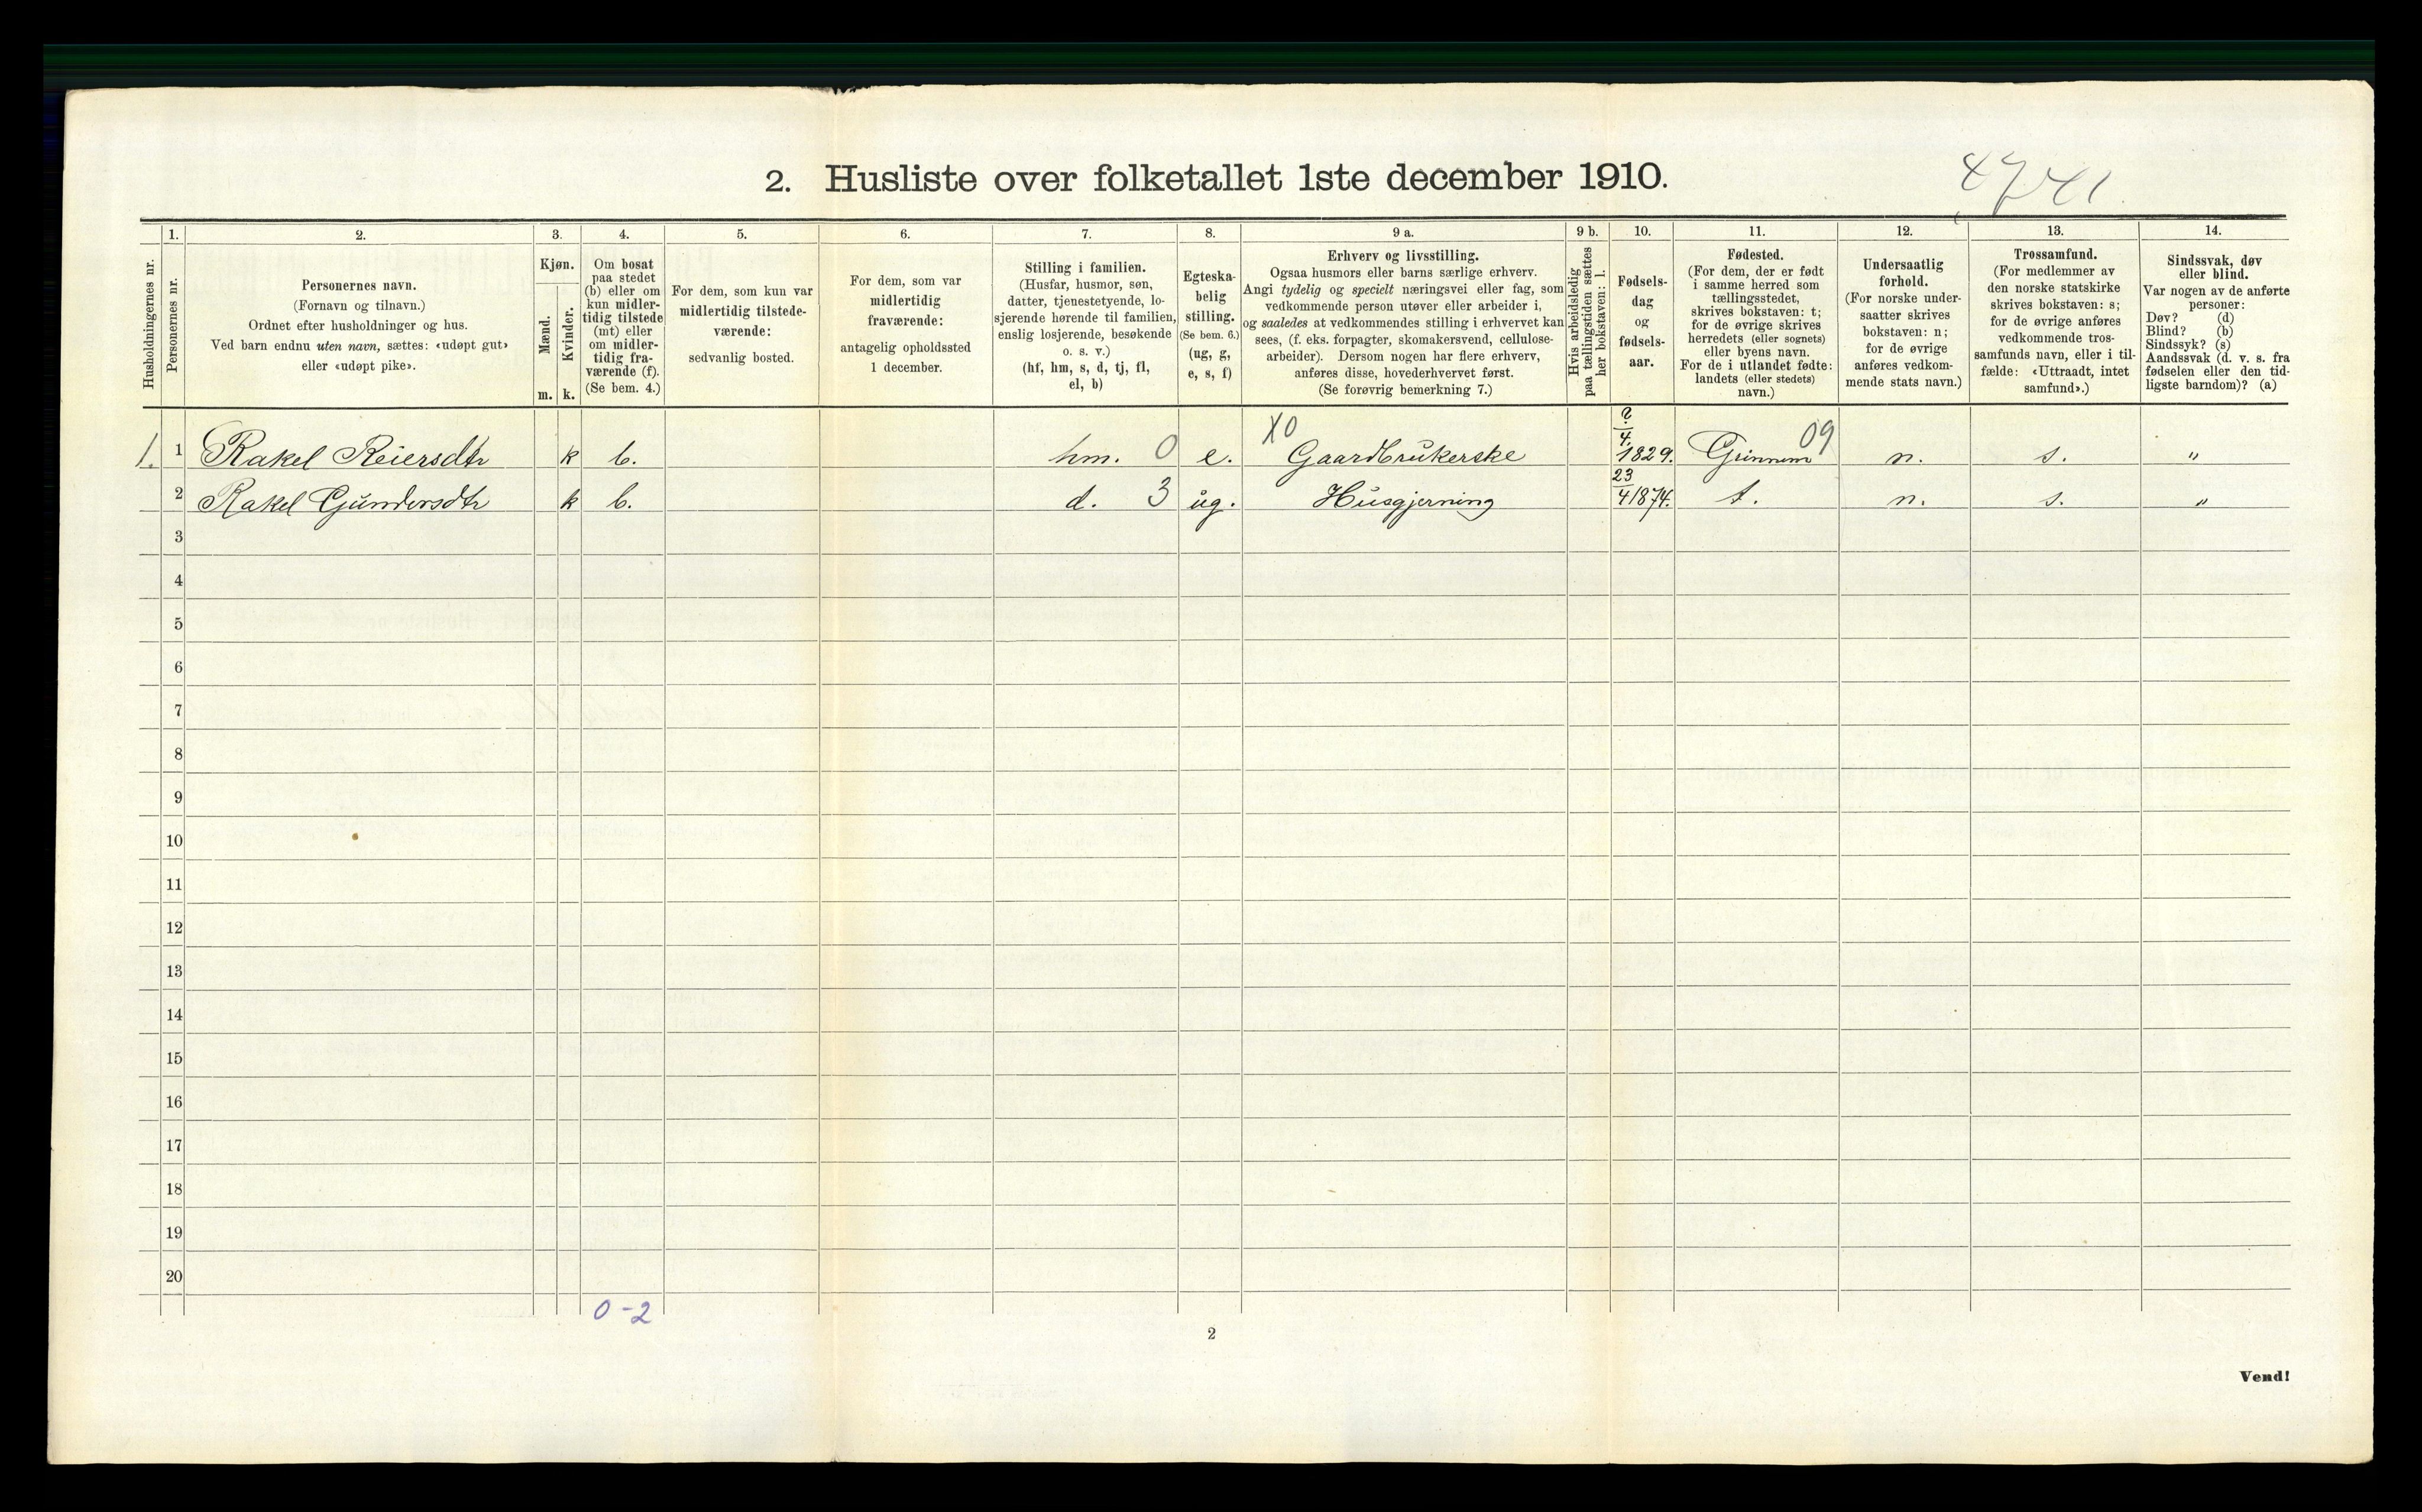 2. Husliste over folketallet 1ste december 1910.
Husholdningernes nr.
1.
Personernes nr.
2.
Personernes navn.
(Fornavn og tilnavn.)
Ordnet efter husholdninger og hus.
Ved barn endnu uten navn, sættes: «udøpt gut»
eller «udøpt pike».
3.
Kjøn.
Mænd.
Kvinder.
m. k.
4.
Om bosat
paa stedet
(b) eller om
kun midler-
tidig tilstede
(mt) eller
om midler-
tidig fra-
værende (f).
(Se bem. 4.)
5.
For dem, som kun var
midlertidig tilstede-
værende:
sedvanlig bosted.
6.
For dem, som var
midlertidig
fraværende:
antagelig opholdssted
1 december.
7.
Stilling i familien.
(Husfar, husmor, søn,
datter, tjenestetyende, lo-
sjerende hørende til familien,
enslig losjerende, besøkende
o. s. v.)
(hf, hm, s, d, tj, fl,
el, b)
8.
Egteska-
belig
stilling.
(Se bem. 6.)
(ug, g,
e, s, f)
9 a.
Erhverv og livsstilling.
Ogsaa husmors eller barns særlige erhverv.
Angi tydelig og specielt næringsvei eller fag, som
vedkommende person utøver eller arbeider i,
og saaledes at vedkommendes stilling i erhvervet kan
sees, (f. eks. forpagter, skomakersvend, cellulose-
arbeider). Dersom nogen har flere erhverv,
anføres disse, hovederhvervet først.
(Se forøvrig bemerkning 7.)
9 b.
Hvis arbeidsledig
paa tællingstiden sættes
her bokstaven: l.
10.
Fødsels-
dag
og
fødsels-
aar.
11.
Fødested.
(For dem, der er født
i samme herred som
tællingsstedet,
skrives bokstaven: t;
for de øvrige skrives
herredets (eller sognets)
eller byens navn.
For de i utlandet fødte:
landets (eller stedets)
navn.)
12.
Undersaatlig
forhold.
(For norske under-
saatter skrives
bokstaven: n;
for de øvrige
anføres vedkom-
mende stats navn.)
13.
Trossamfund.
(For medlemmer av
den norske statskirke
skrives bokstaven: s;
for de øvrige anføres
vedkommende tros-
samfunds navn, eller i til-
fælde: «Uttraadt, intet
samfund».)
14.
Sindssvak, døv
eller blind.
Var nogen av de anførte
personer:
Døv? (d)
Blind? (b)
Sindssyk? (s)
Aandssvak (d. v. s. fra
fødselen eller den tid-
ligste barndom)? (a)
1. 1 Rakel Reiersdtr k b. hm. 0 e. X0 Gaardbrukerske ?/4. 1829. Grinnem 09 n. s. "
2 Rakel Gundersdtr k b. d. 3 ug. Husgjerning 23/4 1874. t. n. s. "
3
4
5
6
7
8
9
10
11
12
13
14
15
16
17
18
19
20
0-2
2
Vend!